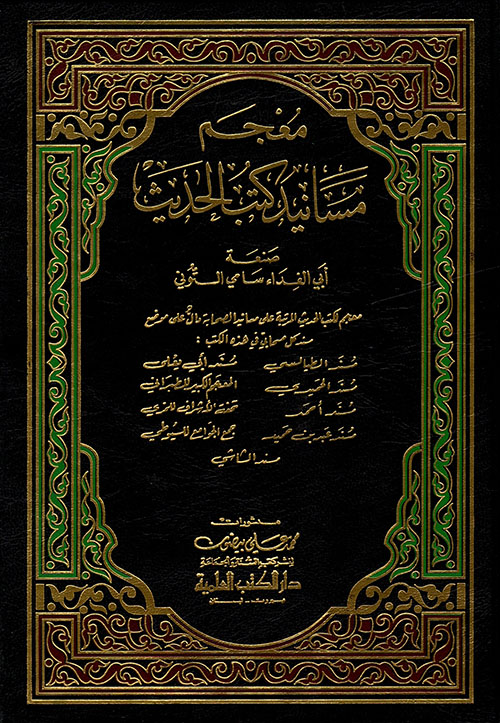 معجم
مسانيد كتب الحديث
صنعة
أبي الفداء سامي التوني
معجم لكتب الحديث المرتبة على مسانيد الصحابة دالّ على موضع
مسند كل صحابي في هذه الكتب :
مسند الطيالسي مسند أبي يعلى
مسند الحميدي المعجم الكبير للطبراني
مسند أحمد تحفة الأشراف للمزي
مسند عبد بن حميد جمع الجوامع للسيوطي
مسند الشاشي
منشورات
محمد علي بيضون
لنشر كتب السنة والجماعة
دار الكتب العلمية
بيروت - لبنان